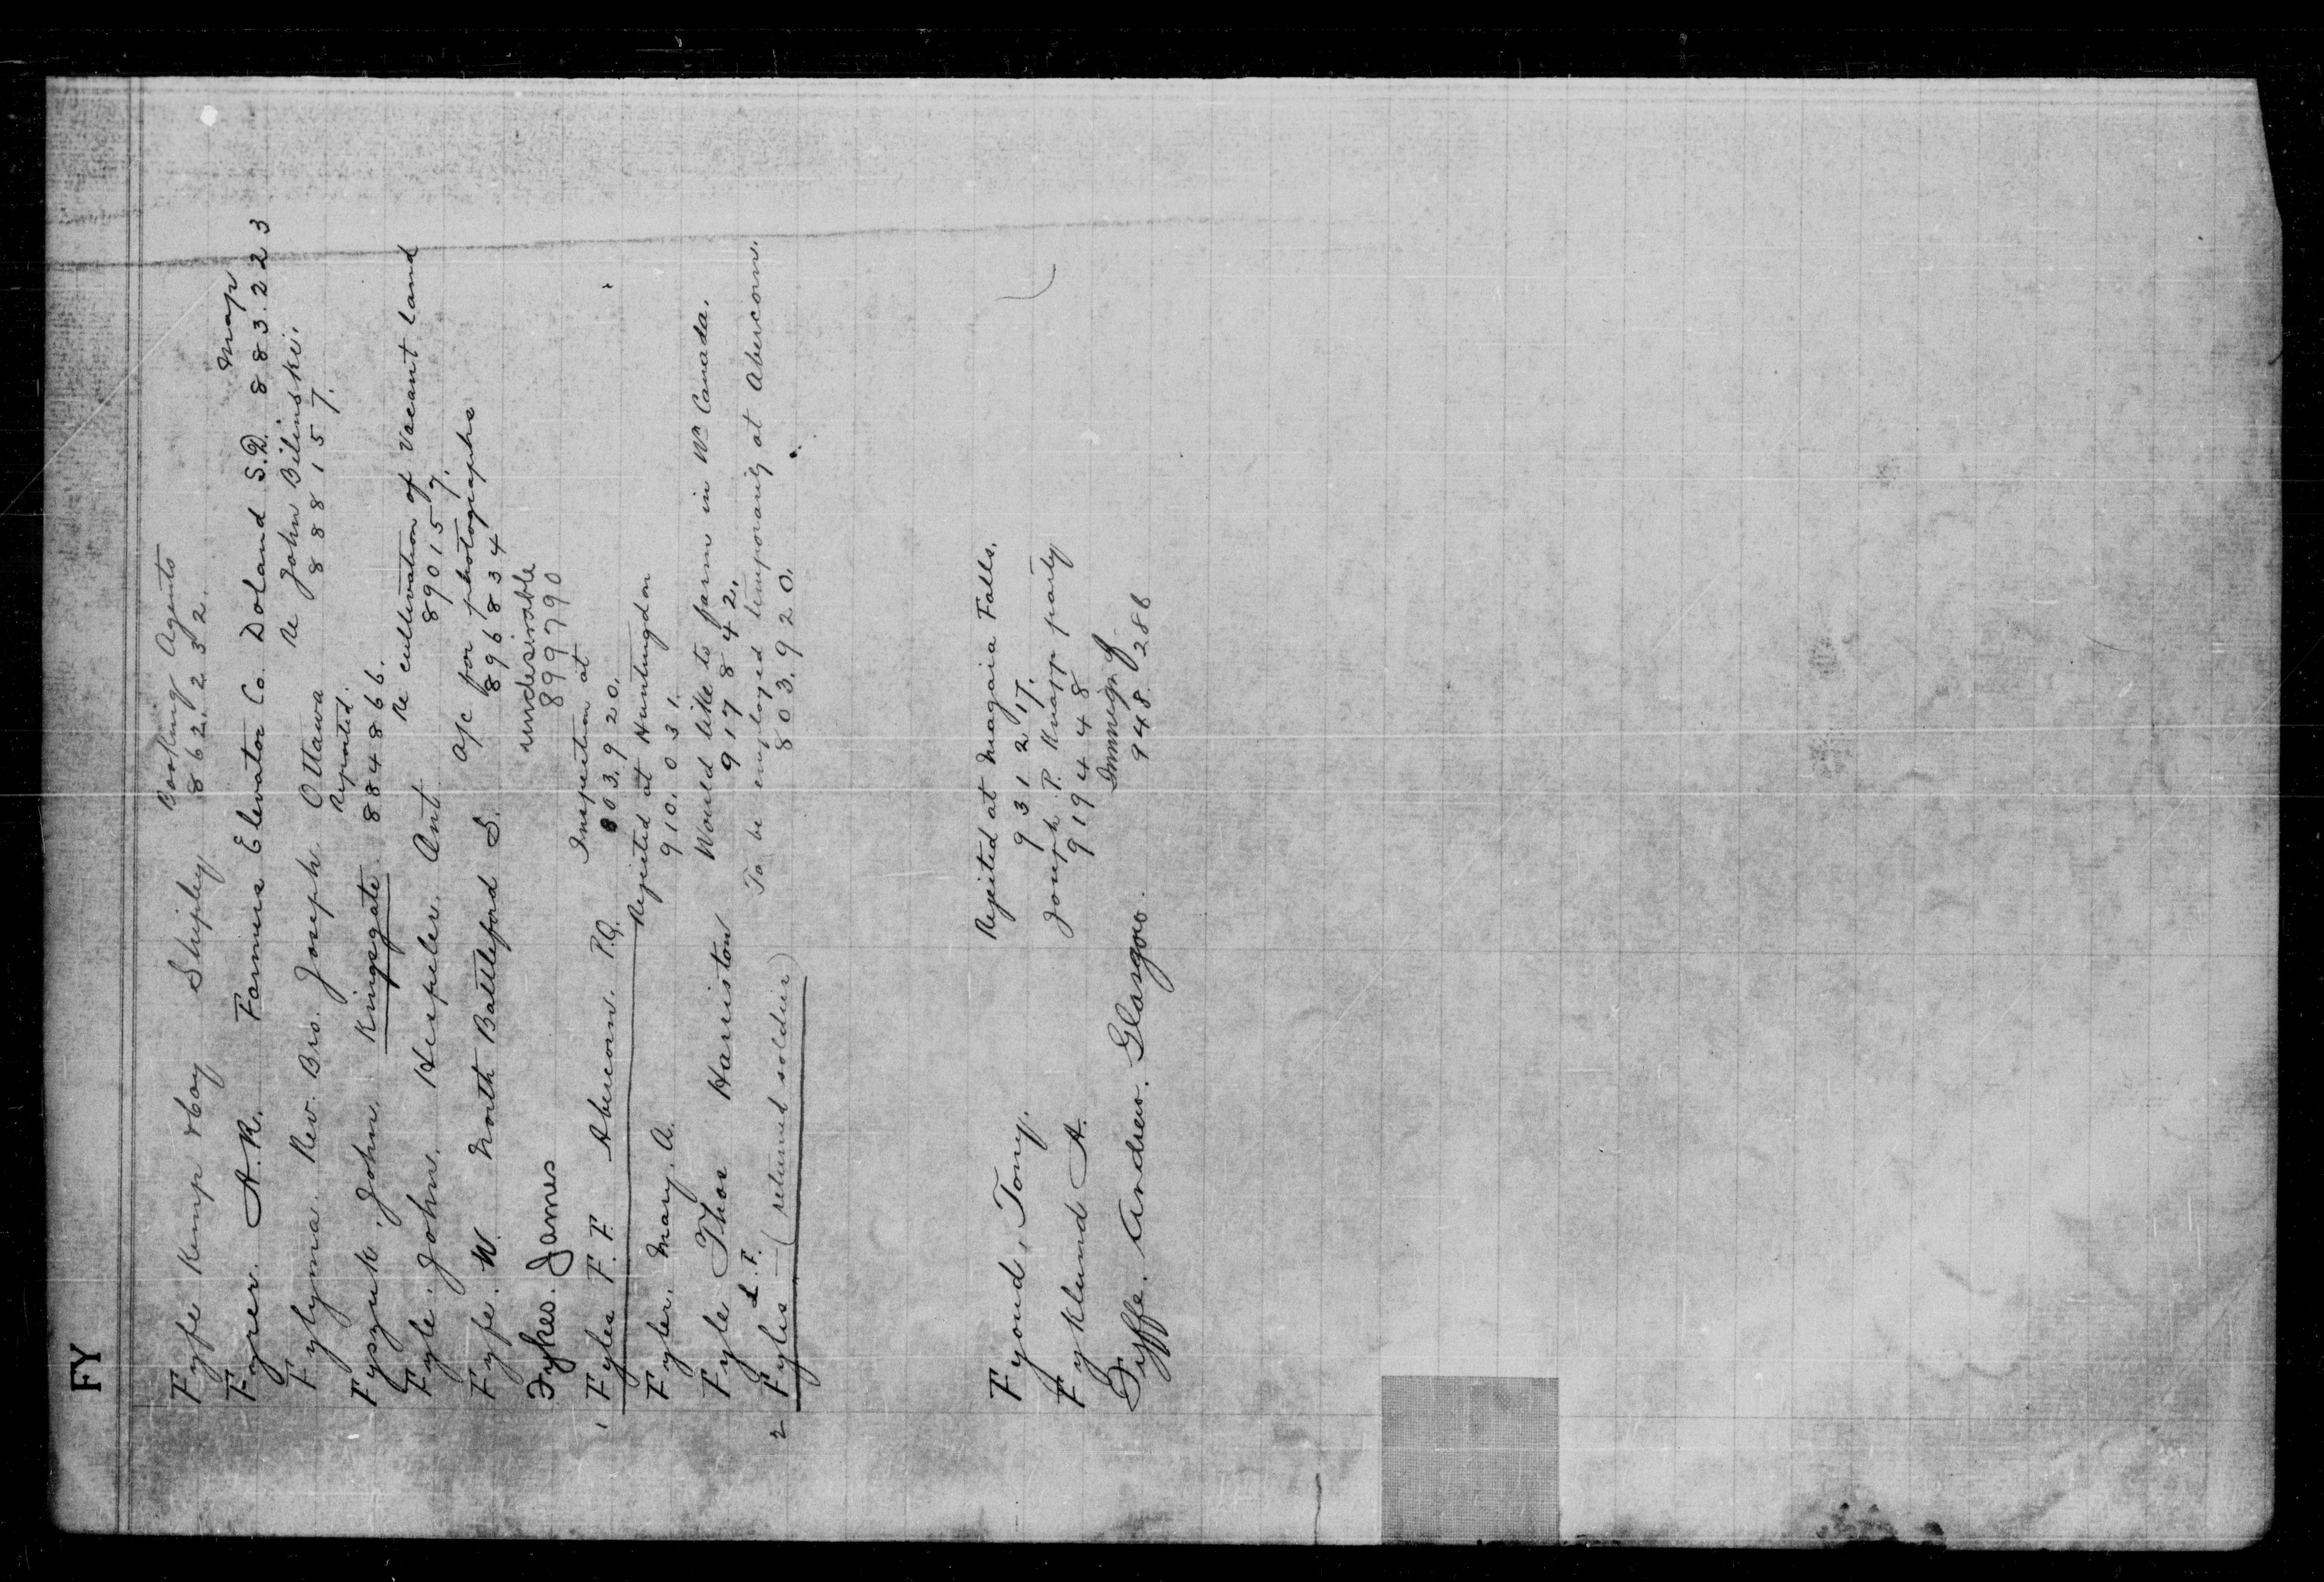 FY
Fyfe Kemp & Coy Shipley Booking Agents
862.232.
Fyrer. A.R. Farmers Elevator Co. Doland S.D. Map
883.223
Fylyma. Rev. Bro. Joseph. Ottawa Re John Bilinski.
888157.
Fyszuk. John. Kingsgate Rejected.
884866.
Fyle. John. Hespeler. Ont. Re cultivation of Vacant Land
890157.
Fyfe. W. North Battleford S. a/c for photographs
896834
Fykes. James undesirable
899790
1 Fyles F.F. Abercorn. P.Q. Inspection at
803.920.
Fyler. Mary. A. Rejected at Huntingdon
910.031.
Fyle Thos Harriston Would like to farm in Wn Canada.
917842.
2 Fyles L.F. (returned soldier) To be employed temporarily at Abercorn.
803.920.
Fyond, Tony. Rejected at Niagara Falls.
931217.
Fyklund A. Joseph P. Knapp party
919448
Fyffe. Andrew. Glasgow. Immign
948286